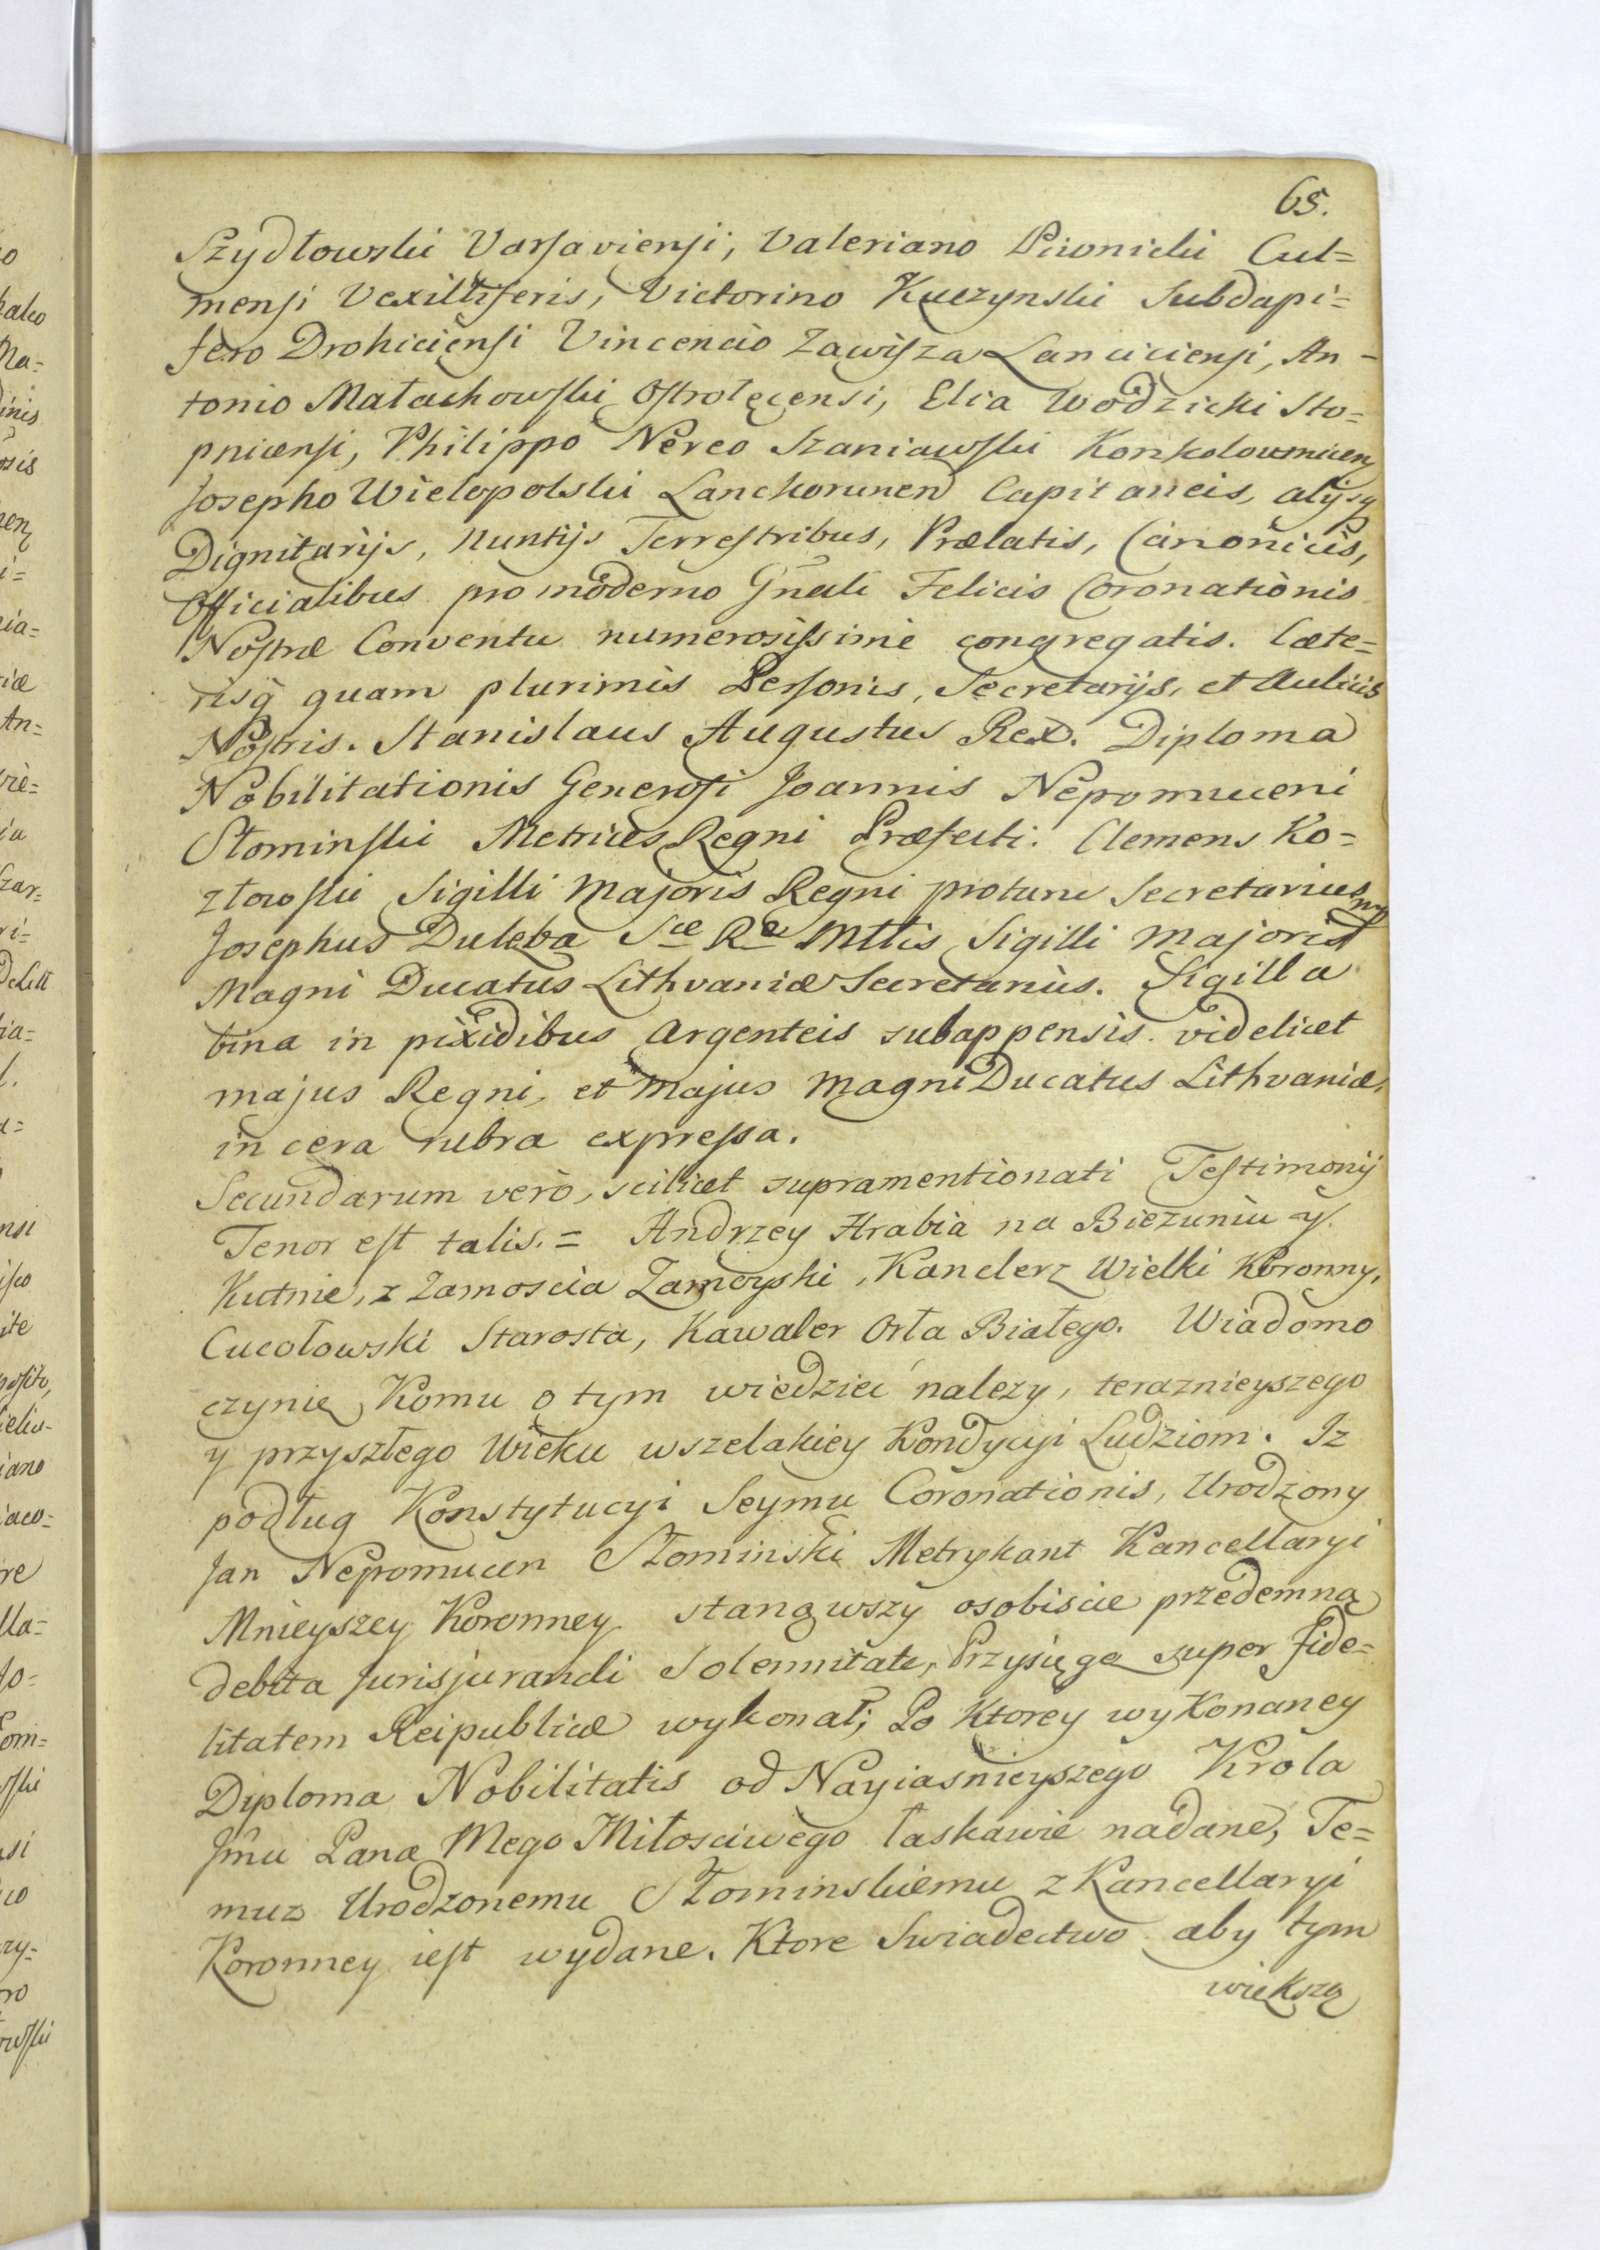 65.
Szydłowski Varsaviensi, Valeriano Piwnicki Cul=
mensi Vexilliferis, Victorino Kuczynski Subdapi=
fero Drohiciensi Vincencio Zawisza Lanciciensi, An-
tonio Małachowski Ostrołęcensi, Elia Wodzicki Sto=
pnicensi, Philippo Nereo Szaniawski Konkolownicen
Josepho Wielopolski Lanckorunen Capitaneis, alijsq
Dignitarijs, Nuntijs Terrestribus, Prælatis, Canonicis,
Officialibus pro moderno Gnali Felicis Coronationis
Nostræ Conventu numerosissime congregatis. Cæte=
risq quam plurimis Personis, Secretarijs, et Aulicis
Nostris. Stanislaus Augustus Rex. Diploma
Nobilitationis Generosi Joannis Nepomuceni
Słominski Metrices Regni Præfecti. Clemens Ko=
złowski Sigilli Majoris Regni protunc Secretarius mp
Josephus Duleba Sæ Ræ Mttis Sigilli Majoris
Magni Ducatus Lithvaniæ Secretarius. Sigilla
bina in pixidibus argenteis subappensis videlicet
majus Regni, et Majus Magni Ducatus Lithvaniæ,
in cera rubra expressa.
Secundarum verò, scilicet supramentionati Testimonij
Tenor est talis. = Andrzey Hrabia na Biezuniu y
Kutnie, z Zamoscia Zamoyski, Kanclerz Wielki Koronny,
Cucołowski Starosta, Kawaler Orła Białego. Wiadomo
czynię Komu o tym wiedzieć nalezy, teraznieyszego
y przyszłego Wieku wszelakiey Kondycyi Ludziom. Iz
podług Konstytucyi Seymu Coronationis, Urodzony
Jan Nepomucen Słominski Metrykant Kancellaryi
Mnieyszey Koronney stanąwszy osobiscie przedemną
debita Jurisjurandi Solennitate, Przysięgę super fide=
litatem Reipublicæ wykonał; Po Ktorey wykonaney
Diploma Nobilitatis od Nayiasnieyszego Krola
Jmci Pana Mego Miłosciwego łaskawie nadane, Te=
muz Urodzonemu Słominskiemu z Kancellaryi
Koronney iest wydane. Ktore Swiadectwo aby tym
większą